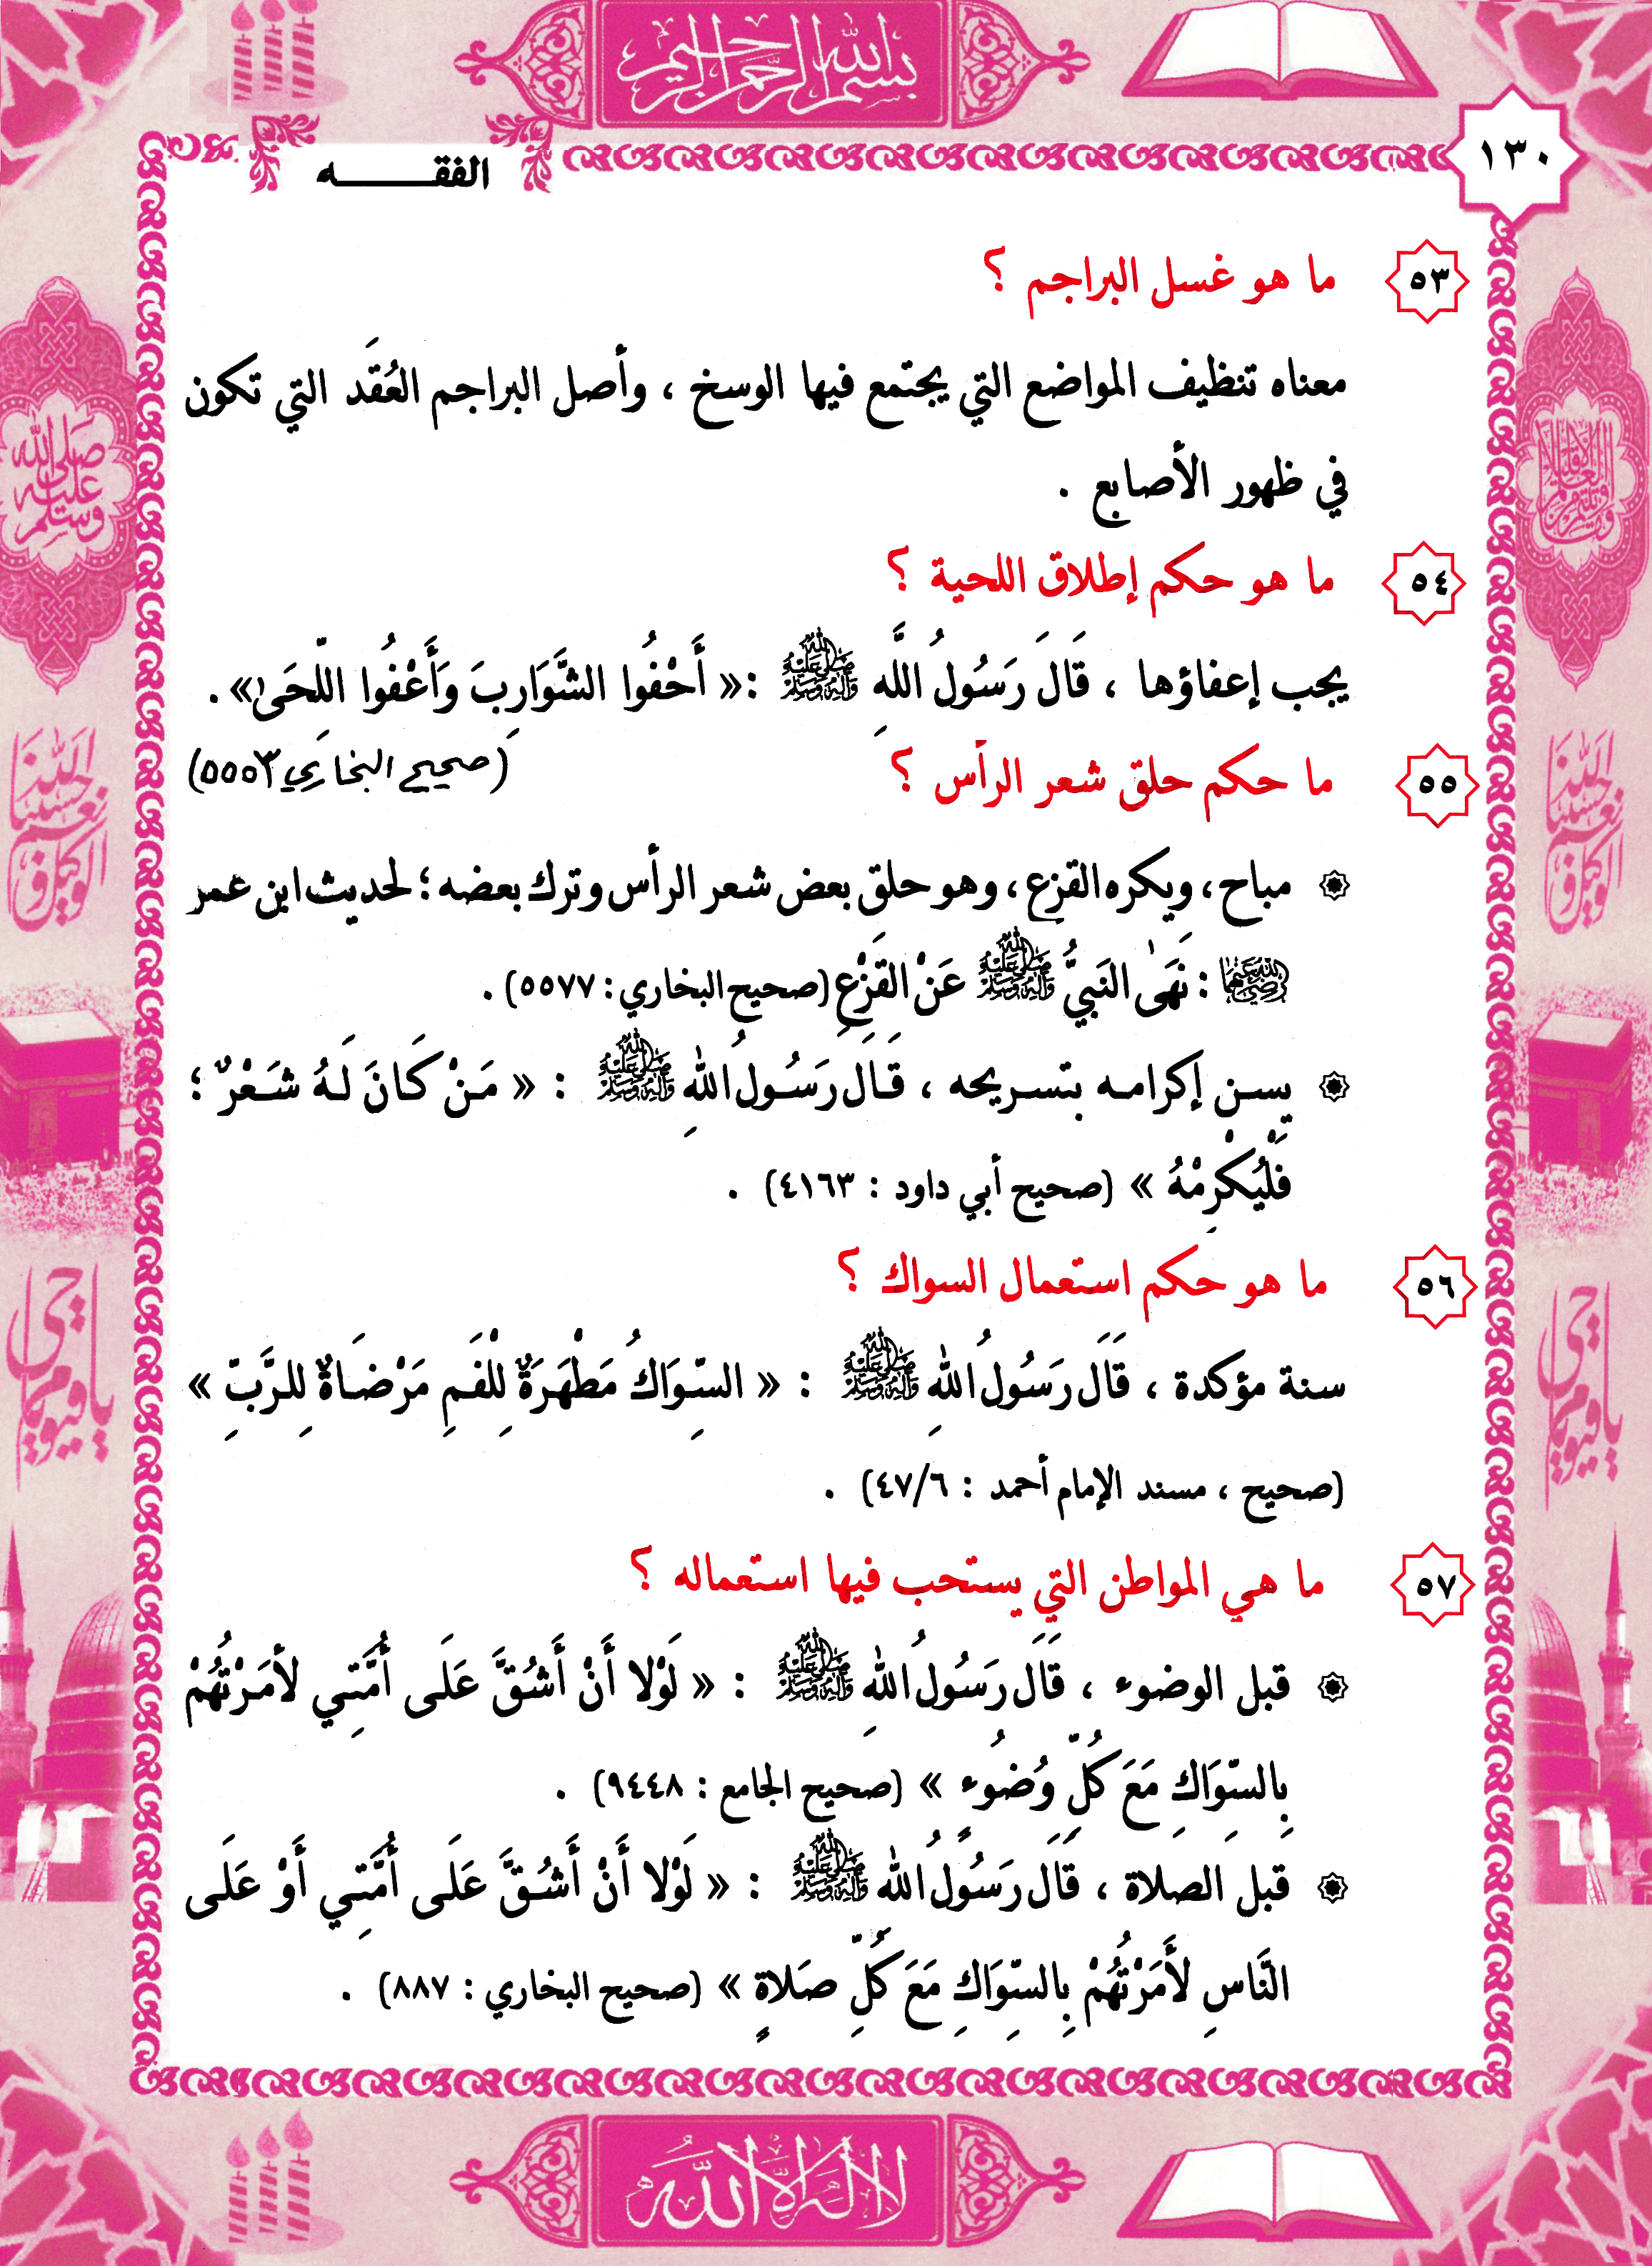 بسم الله الرحمن الرحيم
١٣٠
الفقــــــه
٥٣ ما هو غسل البراجم ؟
معناه تنظيف المواضع التي يجتمع فيها الوسخ ، وأصل البراجم العُقَد التي تكون
في ظهور الأصابع .
٥٤ ما هو حكم إطلاق اللحية ؟
يجب إعفاؤها ، قَالَ رَسُولُ اللَّهِ ﷺ :« أَحْفُوا الشَّوَارِبَ وَأَعْفُوا اللِّحَىٰ» .
(صحيح البخاري ٥٥٥٣)
٥٥ ما حكم حلق شعر الرأس ؟
۞ مباح ، ويكره القزع ، وهو حلق بعض شعر الرأس وترك بعضه ؛ لحديث ابن عمر
رضي الله عنهما : نَهَىٰ النَبيُّ ﷺ عَنْ القَزْعِ (صحيح البخاري : ٥٥٧٧) .
۞ يسن إكرامه بتسريحه ، قَالَ رَسُولُ اللهِ ﷺ : « مَنْ كَانَ لَهُ شَعْرٌ ؛
فَلْيُكْرِمْهُ » (صحيح أبي داود : ٤١٦٣) .
٥٦ ما هو حكم استعمال السواك ؟
سنة مؤكدة ، قَالَ رَسُولُ اللهِ ﷺ : « السِّوَاكُ مَطْهَرَةٌ لِلْفَمِ مَرْضَاةٌ لِلرَّبِّ »
(صحيح ، مسند الإمام أحمد : ٤٧/٦) .
٥٧ ما هي المواطن التي يستحب فيها استعماله ؟
۞ قبل الوضوء ، قَالَ رَسُولُ اللهِ ﷺ : « لَوْلا أَنْ أَشُقَّ عَلَى أُمَّتِي لأَمَرْتُهُمْ
بِالسِّوَاكِ مَعَ كُلِّ وُضُوءٍ » (صحيح الجامع : ٩٤٤٨) .
۞ قبل الصلاة ، قَالَ رَسُولُ اللهِ ﷺ : « لَوْلا أَنْ أَشُقَّ عَلَى أُمَّتِي أَوْ عَلَى
النَّاسِ لأَمَرْتُهُمْ بِالسِّوَاكِ مَعَ كُلِّ صَلاةٍ » (صحيح البخاري : ٨٨٧) .
لا إله إلا الله
صلى الله عليه وسلم
حسبنا الله ونعم الوكيل
يا حي يا قيوم
حسبنا الله ونعم الوكيل
يا حي يا قيوم